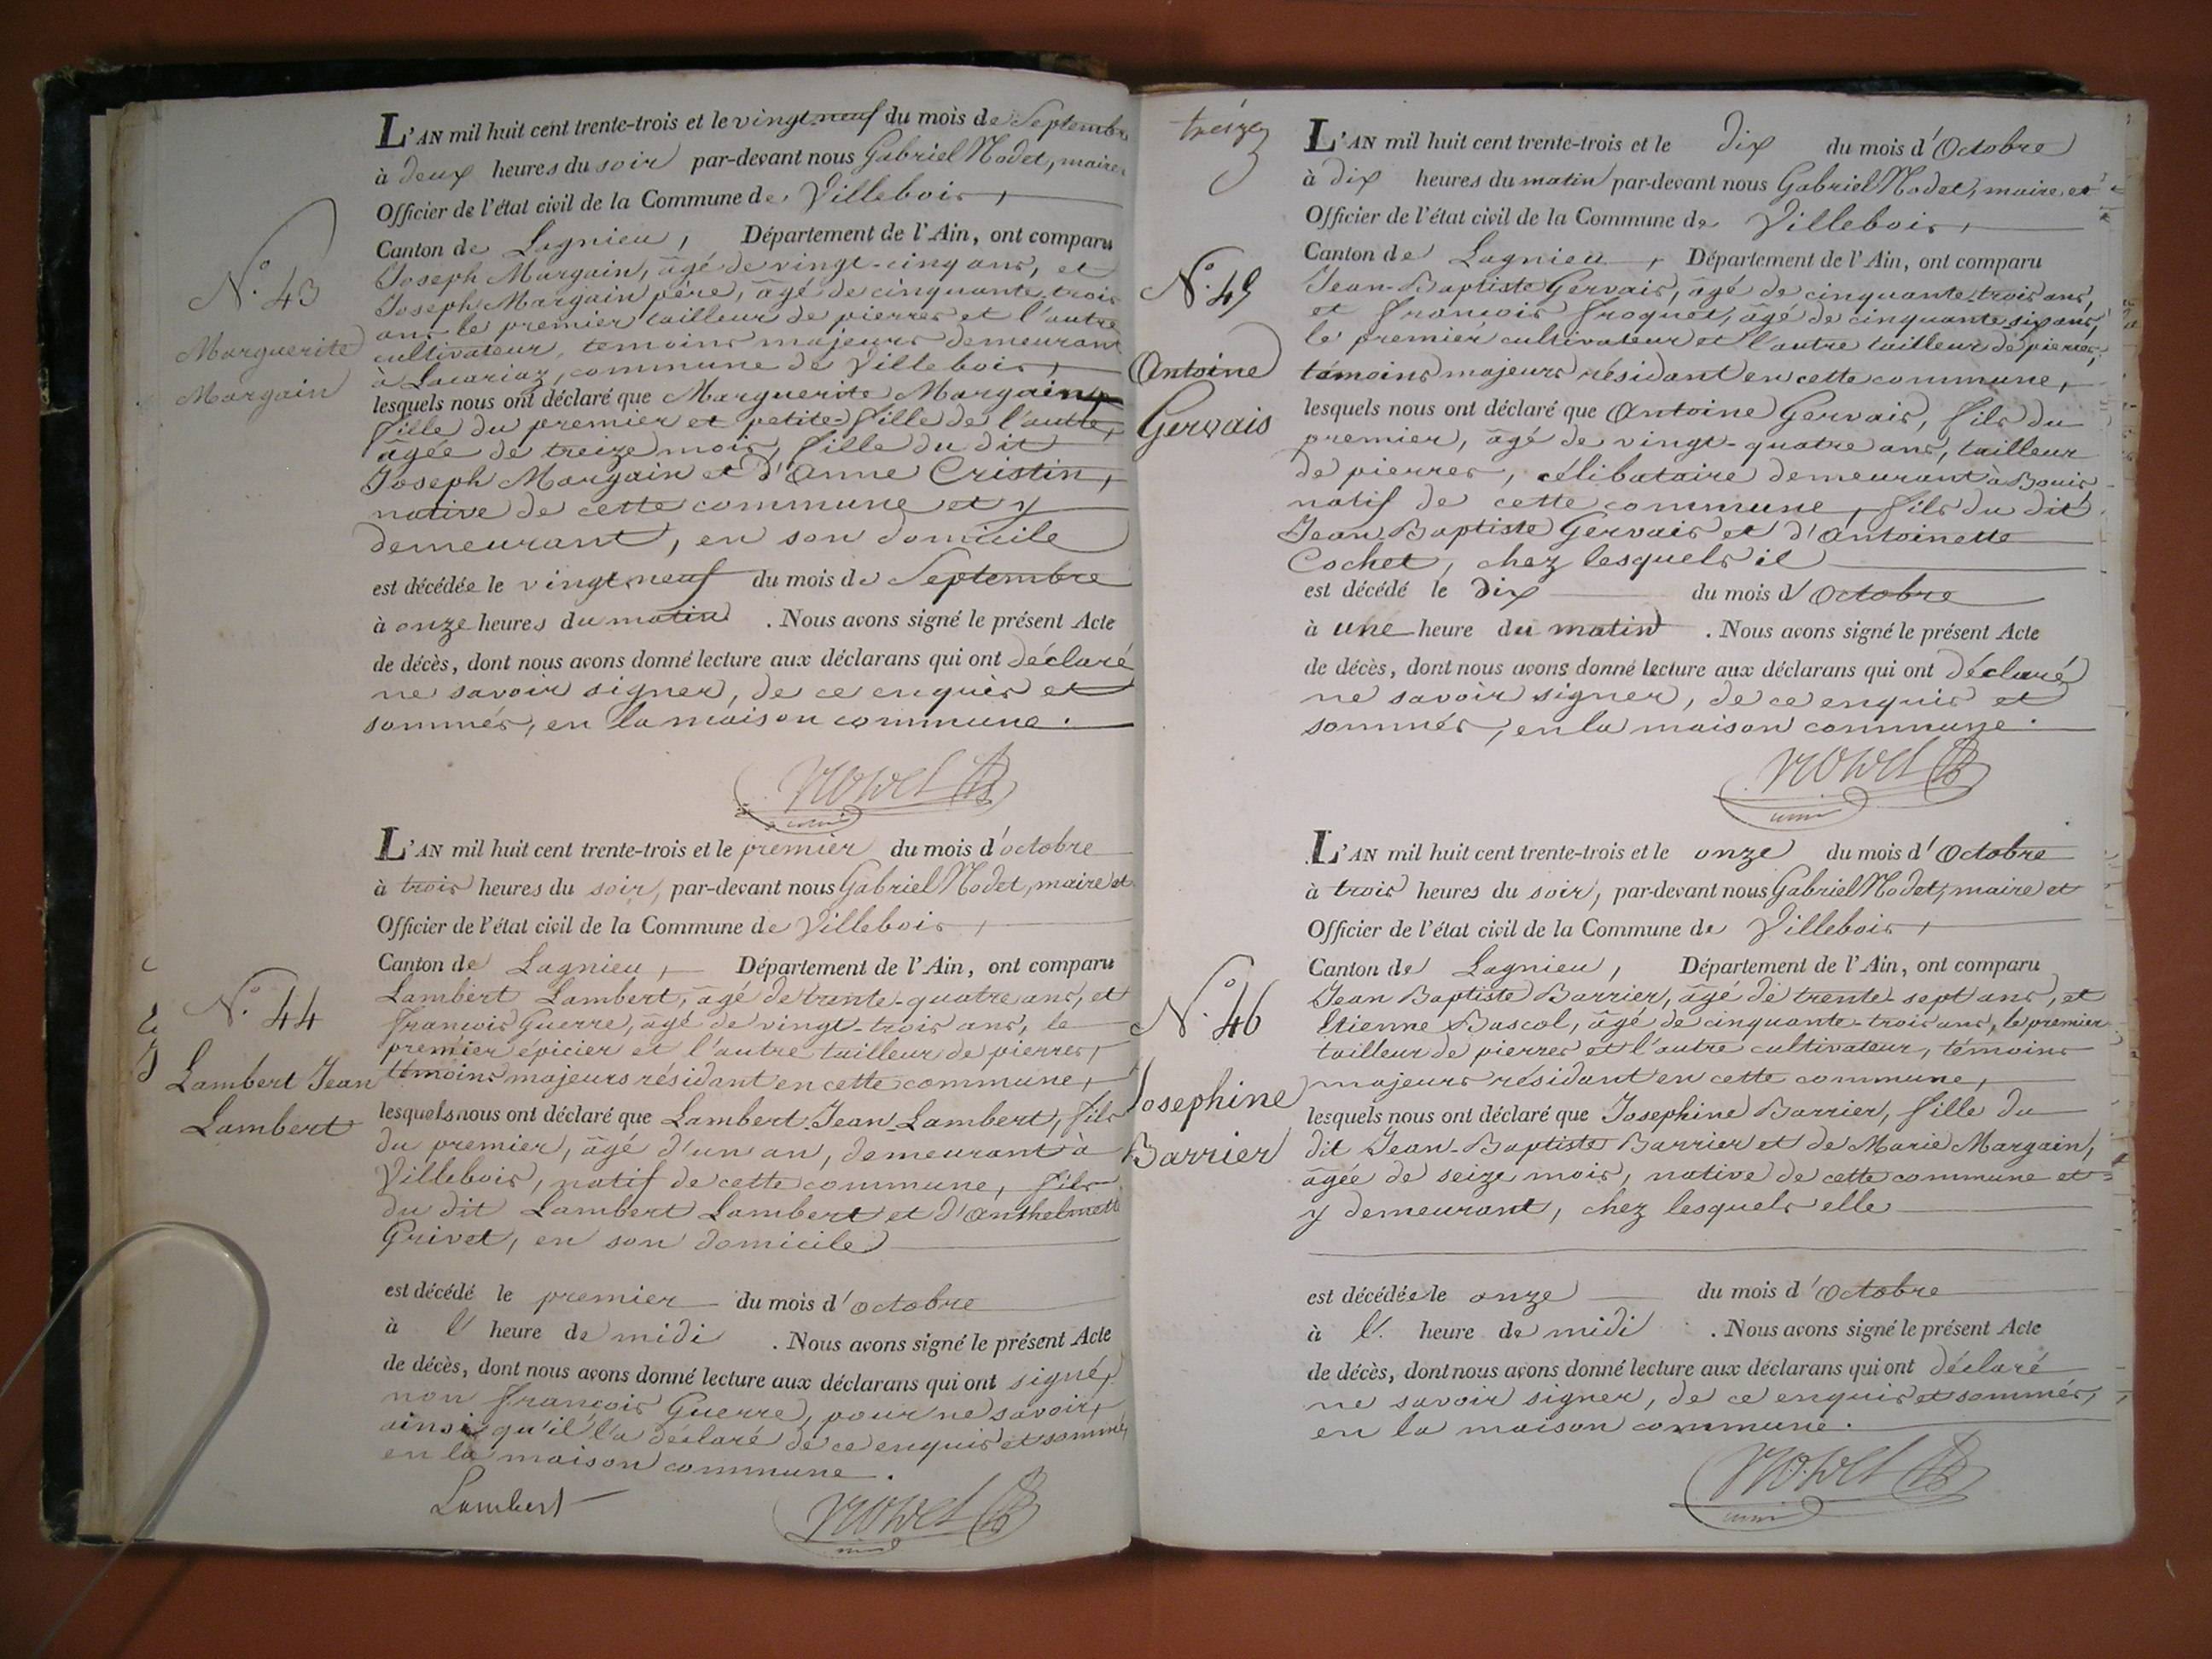 L'AN mil huit cent trente-trois et le vingt-neuf du mois de Septembre
à deux heures du soir par-devant nous Gabriel Nodet, maire
Officier de l'état civil de la Commune de Villebois,
Canton de Lagnieu, Département de l'Ain, ont comparu
Joseph Margain, âgé de vingt-cinq ans, et
Joseph Margain père, âgé de cinquante-trois
ans le premier tailleur de pierres et l'autre
cultivateur, temoins majeurs demeurant
à commune de Villebois,
lesquels nous ont déclaré que Marguerite Margain,
fille du premier et petite-fille de l'autre,
âgée de treize mois, fille du dit
Joseph Margain et d'Anne Cristin,
native de cette commune et y
demeurant, en son domicile
est décédée le vingt-neuf du mois de Septembre
à onze heures du matin. Nous avons signé le présent Acte
de décès, dont nous avons donné lecture aux déclarans qui ont déclaré
ne savoir signer, de ce enquis et
sommés, en la maison commune.
Nodet
N.° 43
Marguerite
Margain
L'AN mil huit cent trente-trois et le premier du mois d'octobre
à trois heures du soir, par-devant nous Gabriel Nodet, maire et
Officier de l'état civil de la Commune de Villebois,
Canton de Lagnieu, Département de l'Ain, ont comparu
Lambert Lambert, âgé de trente-quatre ans, et
francois Guerre, âgé de vingt-trois ans, le
premier épicier et l'autre tailleur de pierres,
témoins majeurs résidant en cette commune,
lesquels nous ont déclaré que Lambert-Jean-Lambert, fils
du premier, âgé d'un an, demeurant à
Villebois, natif de cette commune, fils
du dit Lambert Lambert et d'Anthelmette
Grivet, en son domicile
est décédé le premier du mois d'octobre
à l' heure de midi. Nous avons signé le présent Acte
de décès, dont nous avons donné lecture aux déclarans qui ont signé,
non françois Guerre, pour ne savoir,
ainsi qu'il l'a déclaré de ce enquis et sommé,
en la maison commune.
Lambert Nodet
N.° 44
Lambert Jean
Lambert
treize
L'AN mil huit cent trente-trois et le dix du mois d'Octobre
à dix heures du matin par-devant nous Gabriel Nodet, maire et
Officier de l'état civil de la Commune de Villebois,
Canton de Lagnieu, Département de l'Ain, ont comparu
Jean-Baptiste Gervais, âgé de cinquante-trois ans,
et francois froquet, âgé de cinquante six ans,
le premier cultivateur et l'autre tailleur de pierres,
témoins majeurs résidant en cette commune,
lesquels nous ont déclaré que Antoine Gervais, fils du
premier, âgé de vingt-quatre ans, tailleur
de pierres, célibataire demeurant à Bouis,
natif de cette commune, fils du dit
Jean Baptiste Gervais et d'Antoinette
Cochet, chez lesquels il
est décédé le dix du mois d'Octobre
à une heure du matin. Nous avons signé le présent Acte
de décès, dont nous avons donné lecture aux déclarans qui ont déclaré
ne savoir signer, de ce enquis et
sommés, en la maison commune.
Nodet
N.° 45
Antoine
Gervais
L'AN mil huit cent trente-trois et le onze du mois d'Octobre
à trois heures du soir, par-devant nous Gabriel Nodet, maire et
Officier de l'état civil de la Commune de Villebois,
Canton de Lagnieu, Département de l'Ain, ont comparu
Jean Baptiste Barrier, âgé de trente-sept ans, et
Etienne Bascol, âgé de cinquante-trois ans, le premier
tailleur de pierres et l'autre cultivateur, témoins
majeurs résidant en cette commune,
lesquels nous ont déclaré que Josephine Barrier, fille du
dit Jean-Baptiste Barrier et de Marie Margain,
âgée de seize mois, native de cette commune et
y demeurant, chez lesquels elle
est décédée le onze du mois d'Octobre
à l' heure de midi. Nous avons signé le présent Acte
de décès, dont nous avons donné lecture aux déclarans qui ont déclaré
ne savoir signer, de ce enquis et sommés,
en la maison commune.
Nodet
N.° 46
Josephine
Barrier